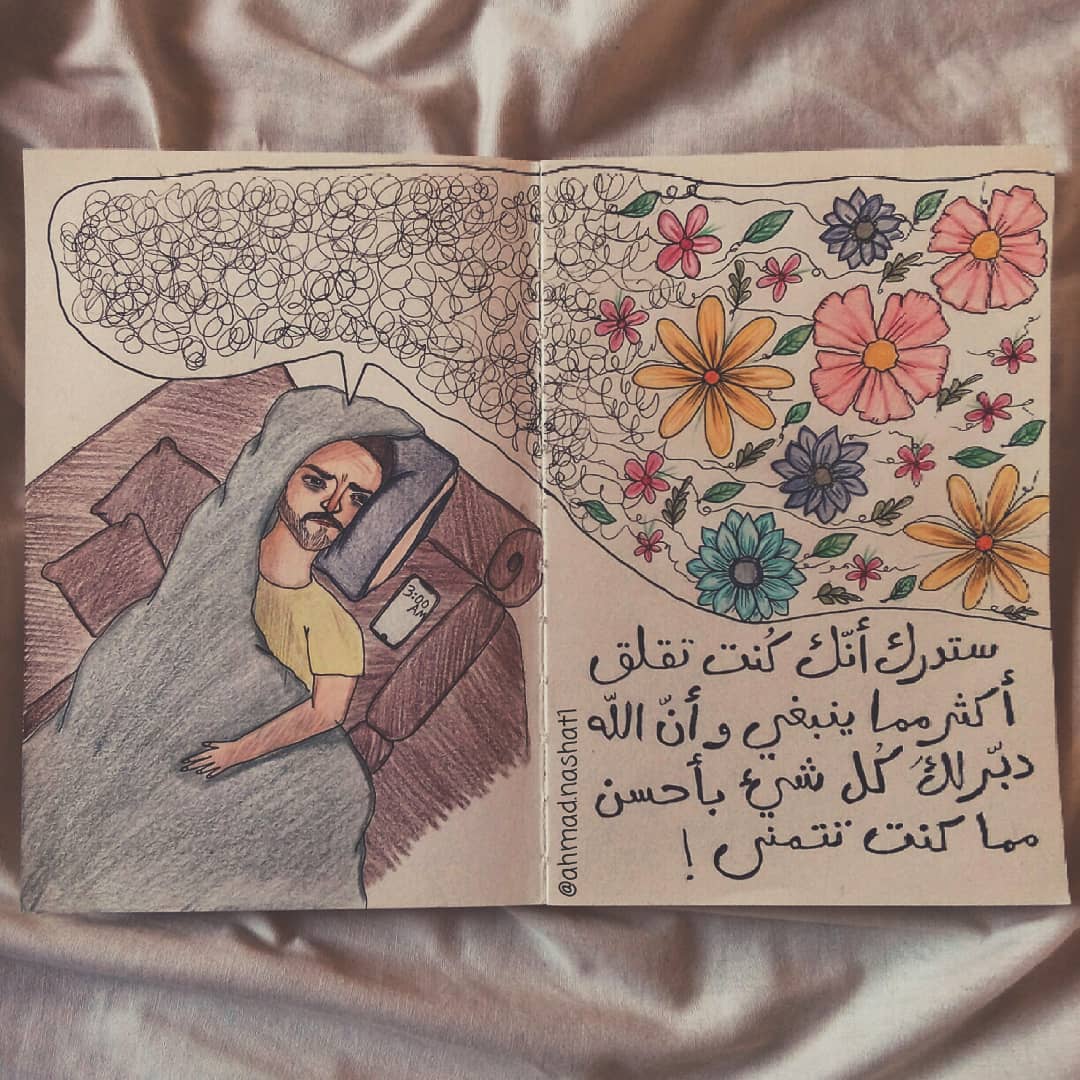 3:00
AM
ستدرك أنّك كُنت تقلق
أكثر مما ينبغي وأنّ اللّه
دبّر لكَ كُل شيء بأحسن
مما كنت تتمنى !
@ahmadnashat1